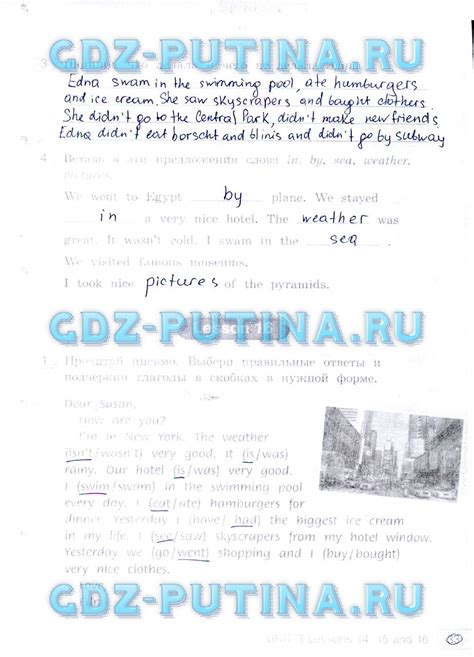 GDZ-PUTINA.RU
3
Edna swam in the swimming pool, ate humburgers
and ice cream. She saw skyscrapers and baught clothers.
She didn't go to the Central Park, didn't make new friends
Edna didn't eat borscht and blinis and didn't go by subway
4 Вставь в эти предложения слова in, by, sea, weather,
pictures.
We went to Egypt by plane. We stayed
in a very nice hotel. The weather was
great. It wasn't cold. I swam in the sea
We visited famous museums.
I took nice pictures of the pyramids.
GDZ-PUTINA.RU
Lesson 15
1 Прочитай письмо. Выбери правильные ответы и
подчеркни глаголы в скобках в нужной форме.
Dear Susan,
How are you?
I'm in New York. The weather
(isn't/wasn't) very good. It (is/was)
rainy. Our hotel (is/was) very good.
I (swim/swam) in the swimming pool
every day. I (eat/ate) hamburgers for
dinner. Yesterday I (have/had) the biggest ice cream
in my life. I (see/saw) skyscrapers from my hotel window.
Yesterday we (go/went) shopping and I (buy/bought)
very nice clothes.
Love,
GDZ-PUTINA.RU
UNIT 3 Lessons 14, 15 and 16 33